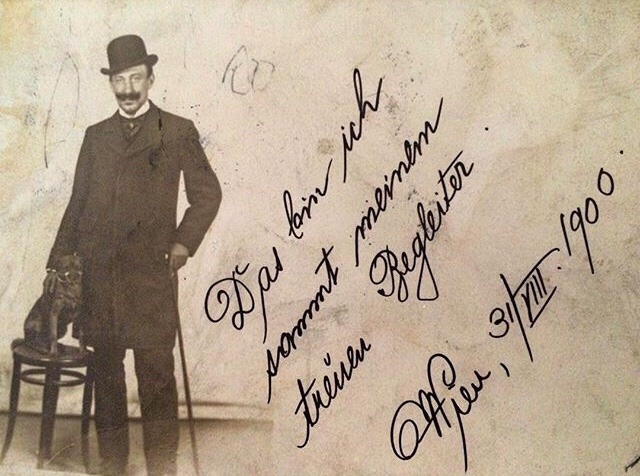 Das bin ich
sammt meinem
treuen Begleiter.
Wien, 31/VIII. 1900.